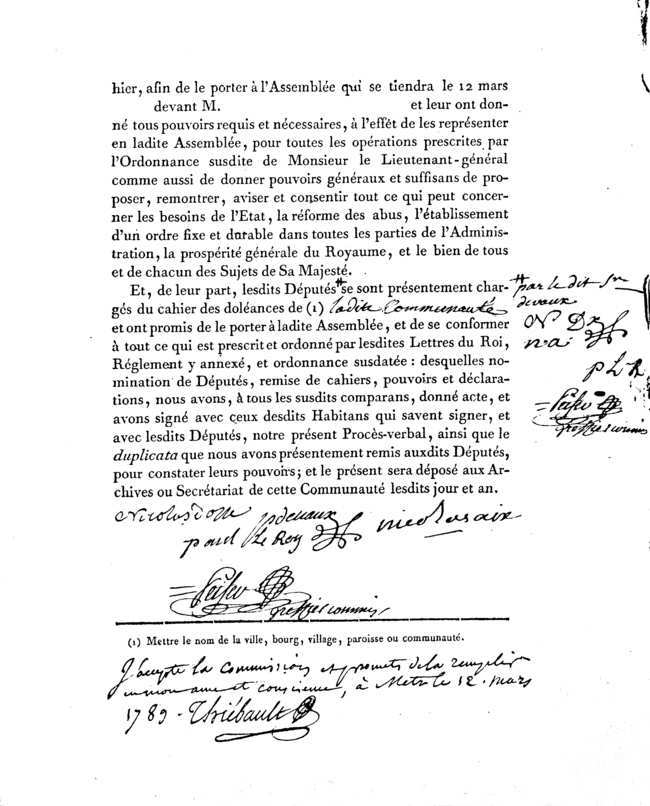 hier, afin de le porter à l'Assemblée qui se tiendra le 12 mars
devant M. et leur ont don-
né tous pouvoirs requis et nécessaires, à l'effet de les représenter
en ladite Assemblée, pour toutes les opérations prescrites par
l'Ordonnance susdite de Monsieur le Lieutenant-général
comme aussi de donner pouvoirs généraux et suffisans de pro-
poser, remontrer, aviser et consentir tout ce qui peut concer-
ner les besoins de l'Etat, la réforme des abus, l'établissement
d'un ordre fixe et durable dans toutes les parties de l'Adminis-
tration, la prospérité générale du Royaume, et le bien de tous
et de chacun des Sujets de Sa Majesté.
Et, de leur part, lesdits Députés # se sont présentement char-
gés du cahier des doléances de (1) ladite Communauté
et ont promis de le porter à ladite Assemblée, et de se conformer
à tout ce qui est prescrit et ordonné par lesdites Lettres du Roi,
Réglement y annexé, et ordonnance susdatée : desquelles no-
mination de Députés, remise de cahiers, pouvoirs et déclara-
tions, nous avons, à tous les susdits comparans, donné acte, et
avons signé avec ceux desdits Habitans qui savent signer, et
avec lesdits Députés, notre présent Procès-verbal, ainsi que le
duplicata que nous avons présentement remis auxdits Députés,
pour constater leurs pouvoirs; et le présent sera déposé aux Ar-
chives ou Secrétariat de cette Communauté lesdits jour et an.
# par le dit Sr
devaux
N D
n a
p L R
greffier commis
devaux
paul Le Roy
greffier commis
(1) Mettre le nom de la ville, bourg, village, paroisse ou communauté.
J'accepte la Commission et promets de la remplir
en mon ame et conscience, à Metz le 12. mars
1789 - Thiébault